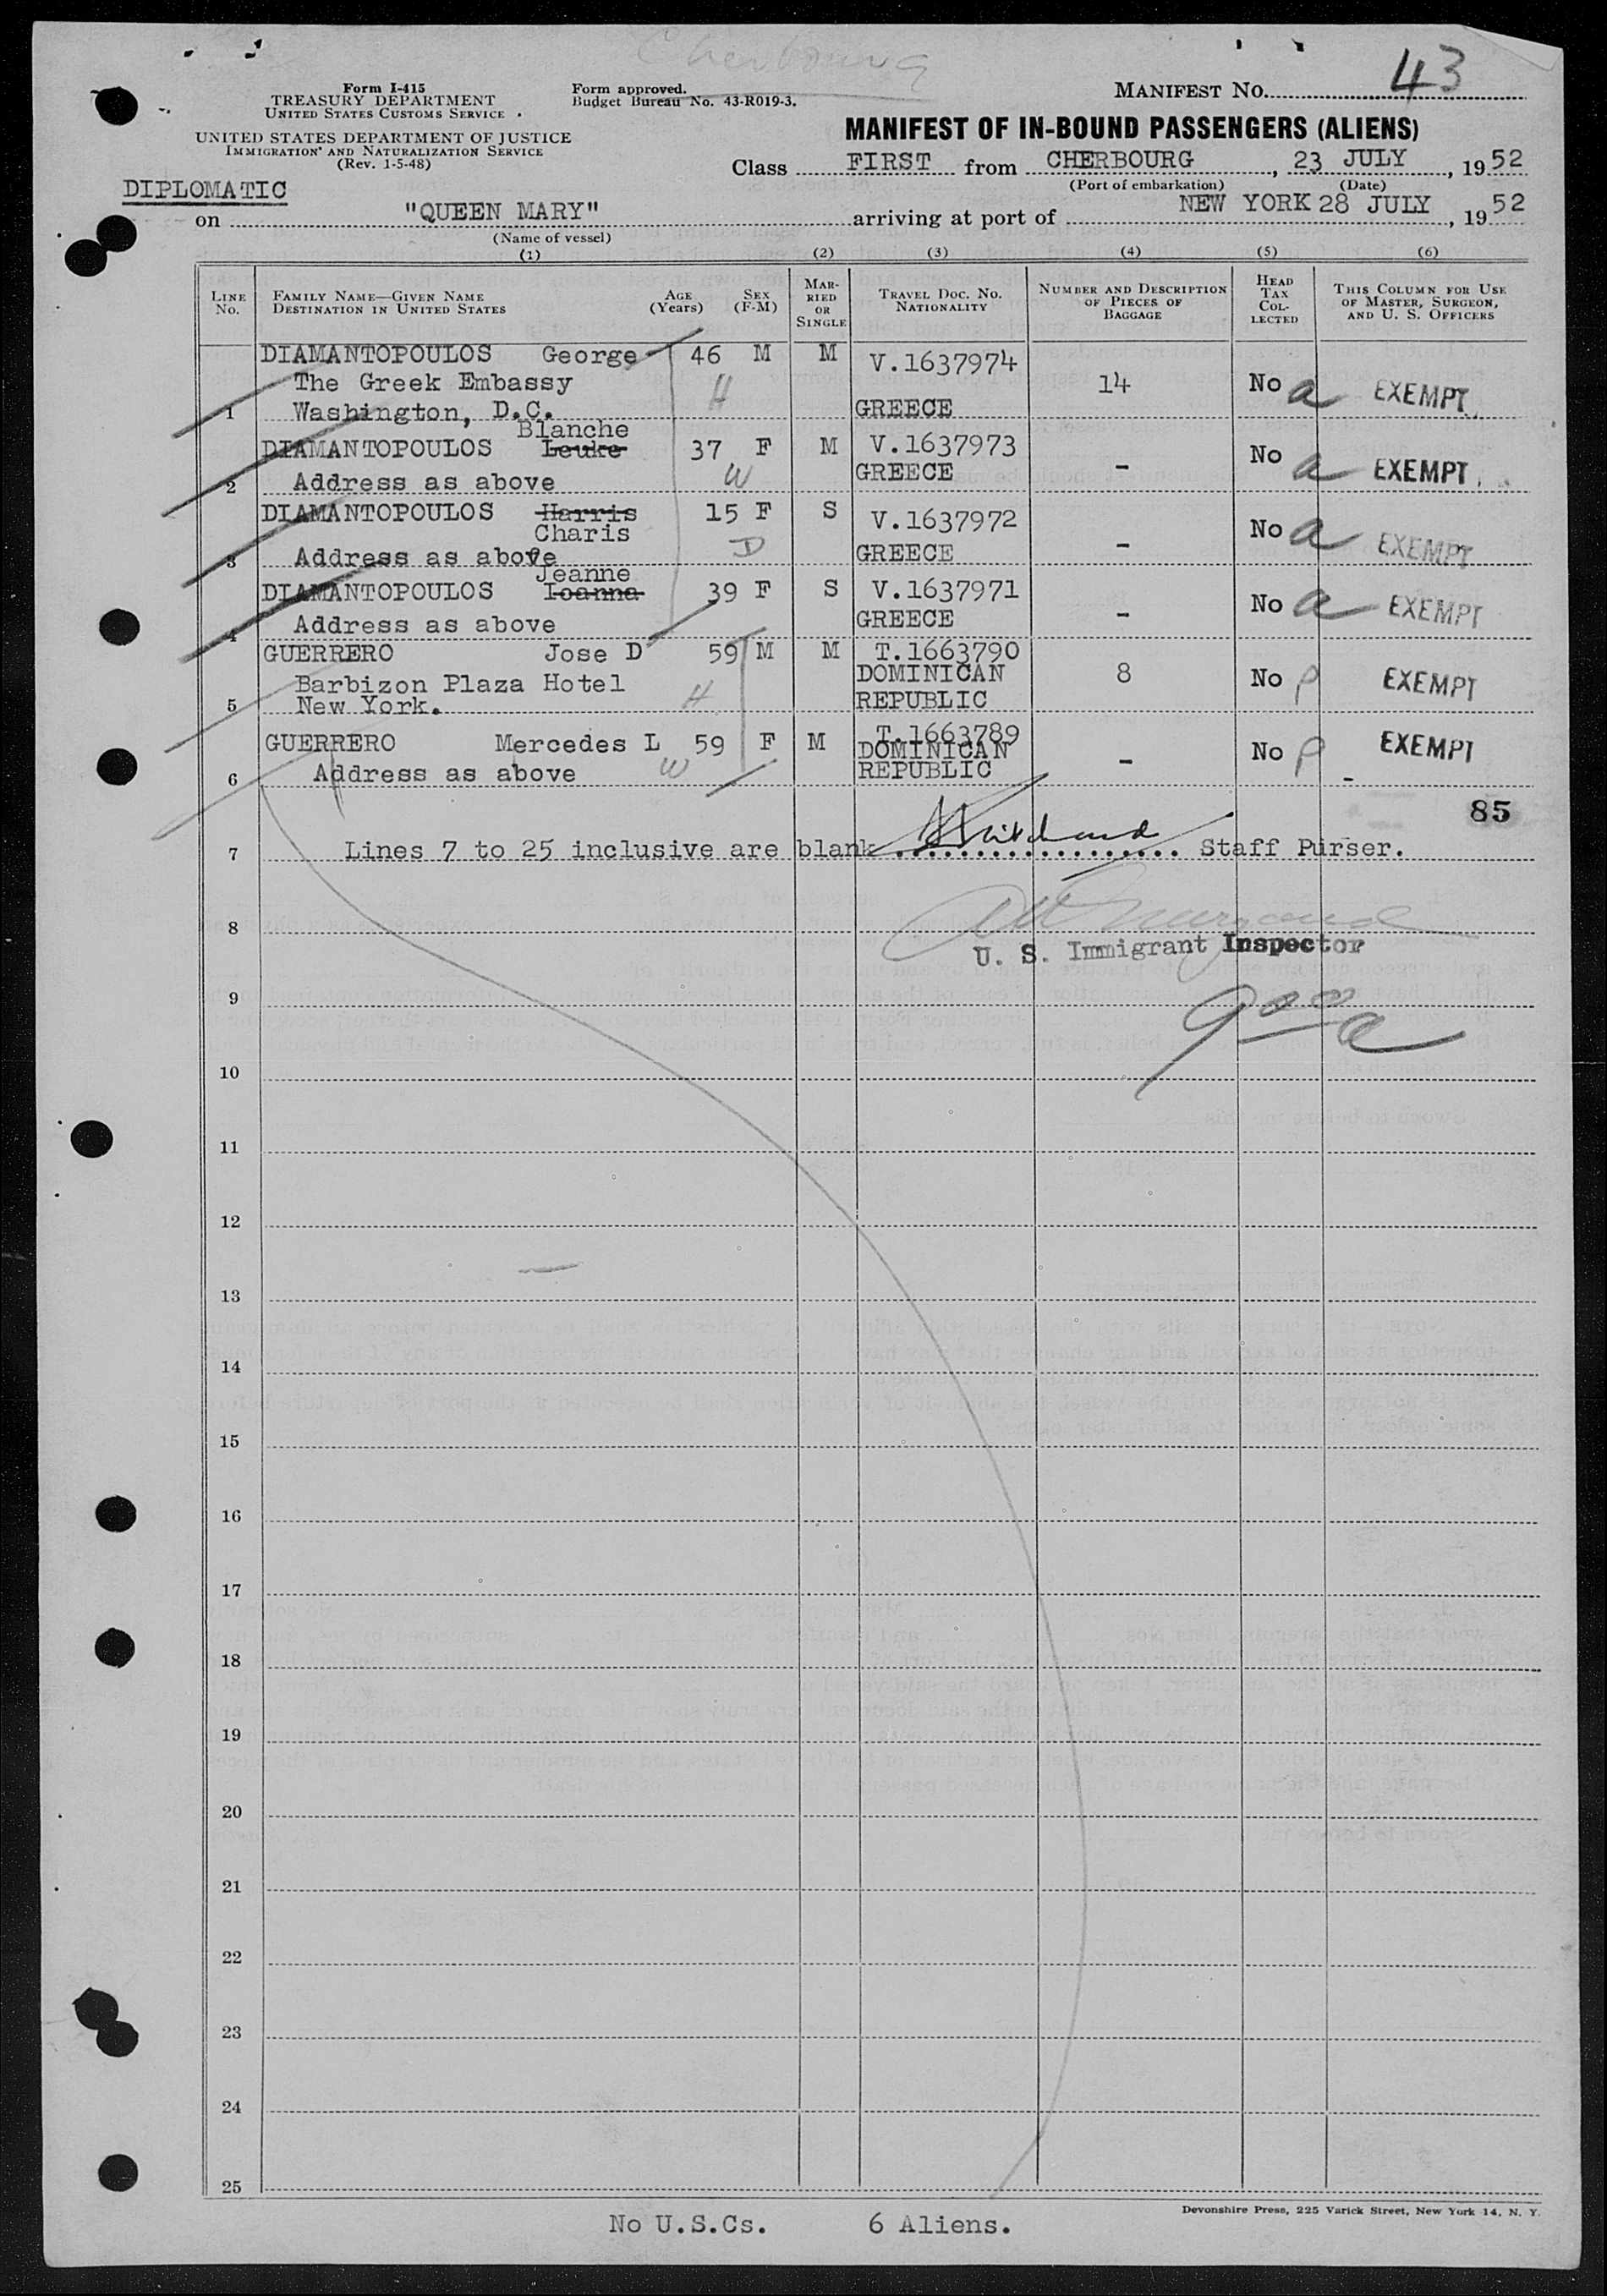 Cherbourg
43
Form I-415
TREASURY DEPARTMENT
UNITED STATES CUSTOMS SERVICE
UNITED STATES DEPARTMENT OF JUSTICE
IMMIGRATION AND NATURALIZATION SERVICE
(Rev. 1-5-48)
Form approved.
Budget Bureau No. 43-R019-3.
MANIFEST NO.
MANIFEST OF IN-BOUND PASSENGERS (ALIENS)
Class FIRST from CHERBOURG, 23 JULY, 1952
(Port of embarkation) (Date)
DIPLOMATIC
on "QUEEN MARY" arriving at port of NEW YORK 28 JULY, 1952
(Name of vessel)
(1) (2) (3) (4) (5) (6)
LINE NO. FAMILY NAME—GIVEN NAME DESTINATION IN UNITED STATES AGE (Years) SEX (F-M) MARRIED OR SINGLE TRAVEL DOC. NO. NATIONALITY NUMBER AND DESCRIPTION OF PIECES OF BAGGAGE HEAD TAX COLLECTED THIS COLUMN FOR USE OF MASTER, SURGEON, AND U. S. OFFICERS
DIAMANTOPOULOS George 46 M M V.1637974
The Greek Embassy H 14 No a EXEMPT
1 Washington, D.C. GREECE
Blanche
DIAMANTOPOULOS Leuke 37 F M V.1637973 No a EXEMPT
2 Address as above W GREECE -
DIAMANTOPOULOS Harris 15 F S V.1637972
Charis No a EXEMPT
3 Address as above D GREECE -
Jeanne
DIAMANTOPOULOS Ioanna 39 F S V.1637971 No a EXEMPT
4 Address as above GREECE -
GUERRERO Jose D 59 M M T.1663790
Barbizon Plaza Hotel H DOMINICAN 8 No p EXEMPT
5 New York. REPUBLIC
GUERRERO Mercedes L 59 F M T.1663789 No p EXEMPT
DOMINICAN
6 Address as above W REPUBLIC -
85
7 Lines 7 to 25 inclusive are blank .................. Staff Purser.
8
U. S. Immigrant Inspector
9
10
11
12
13
14
15
16
17
18
19
20
21
22
23
24
25
Devonshire Press, 225 Varick Street, New York 14, N. Y.
No U.S.Cs. 6 Aliens.